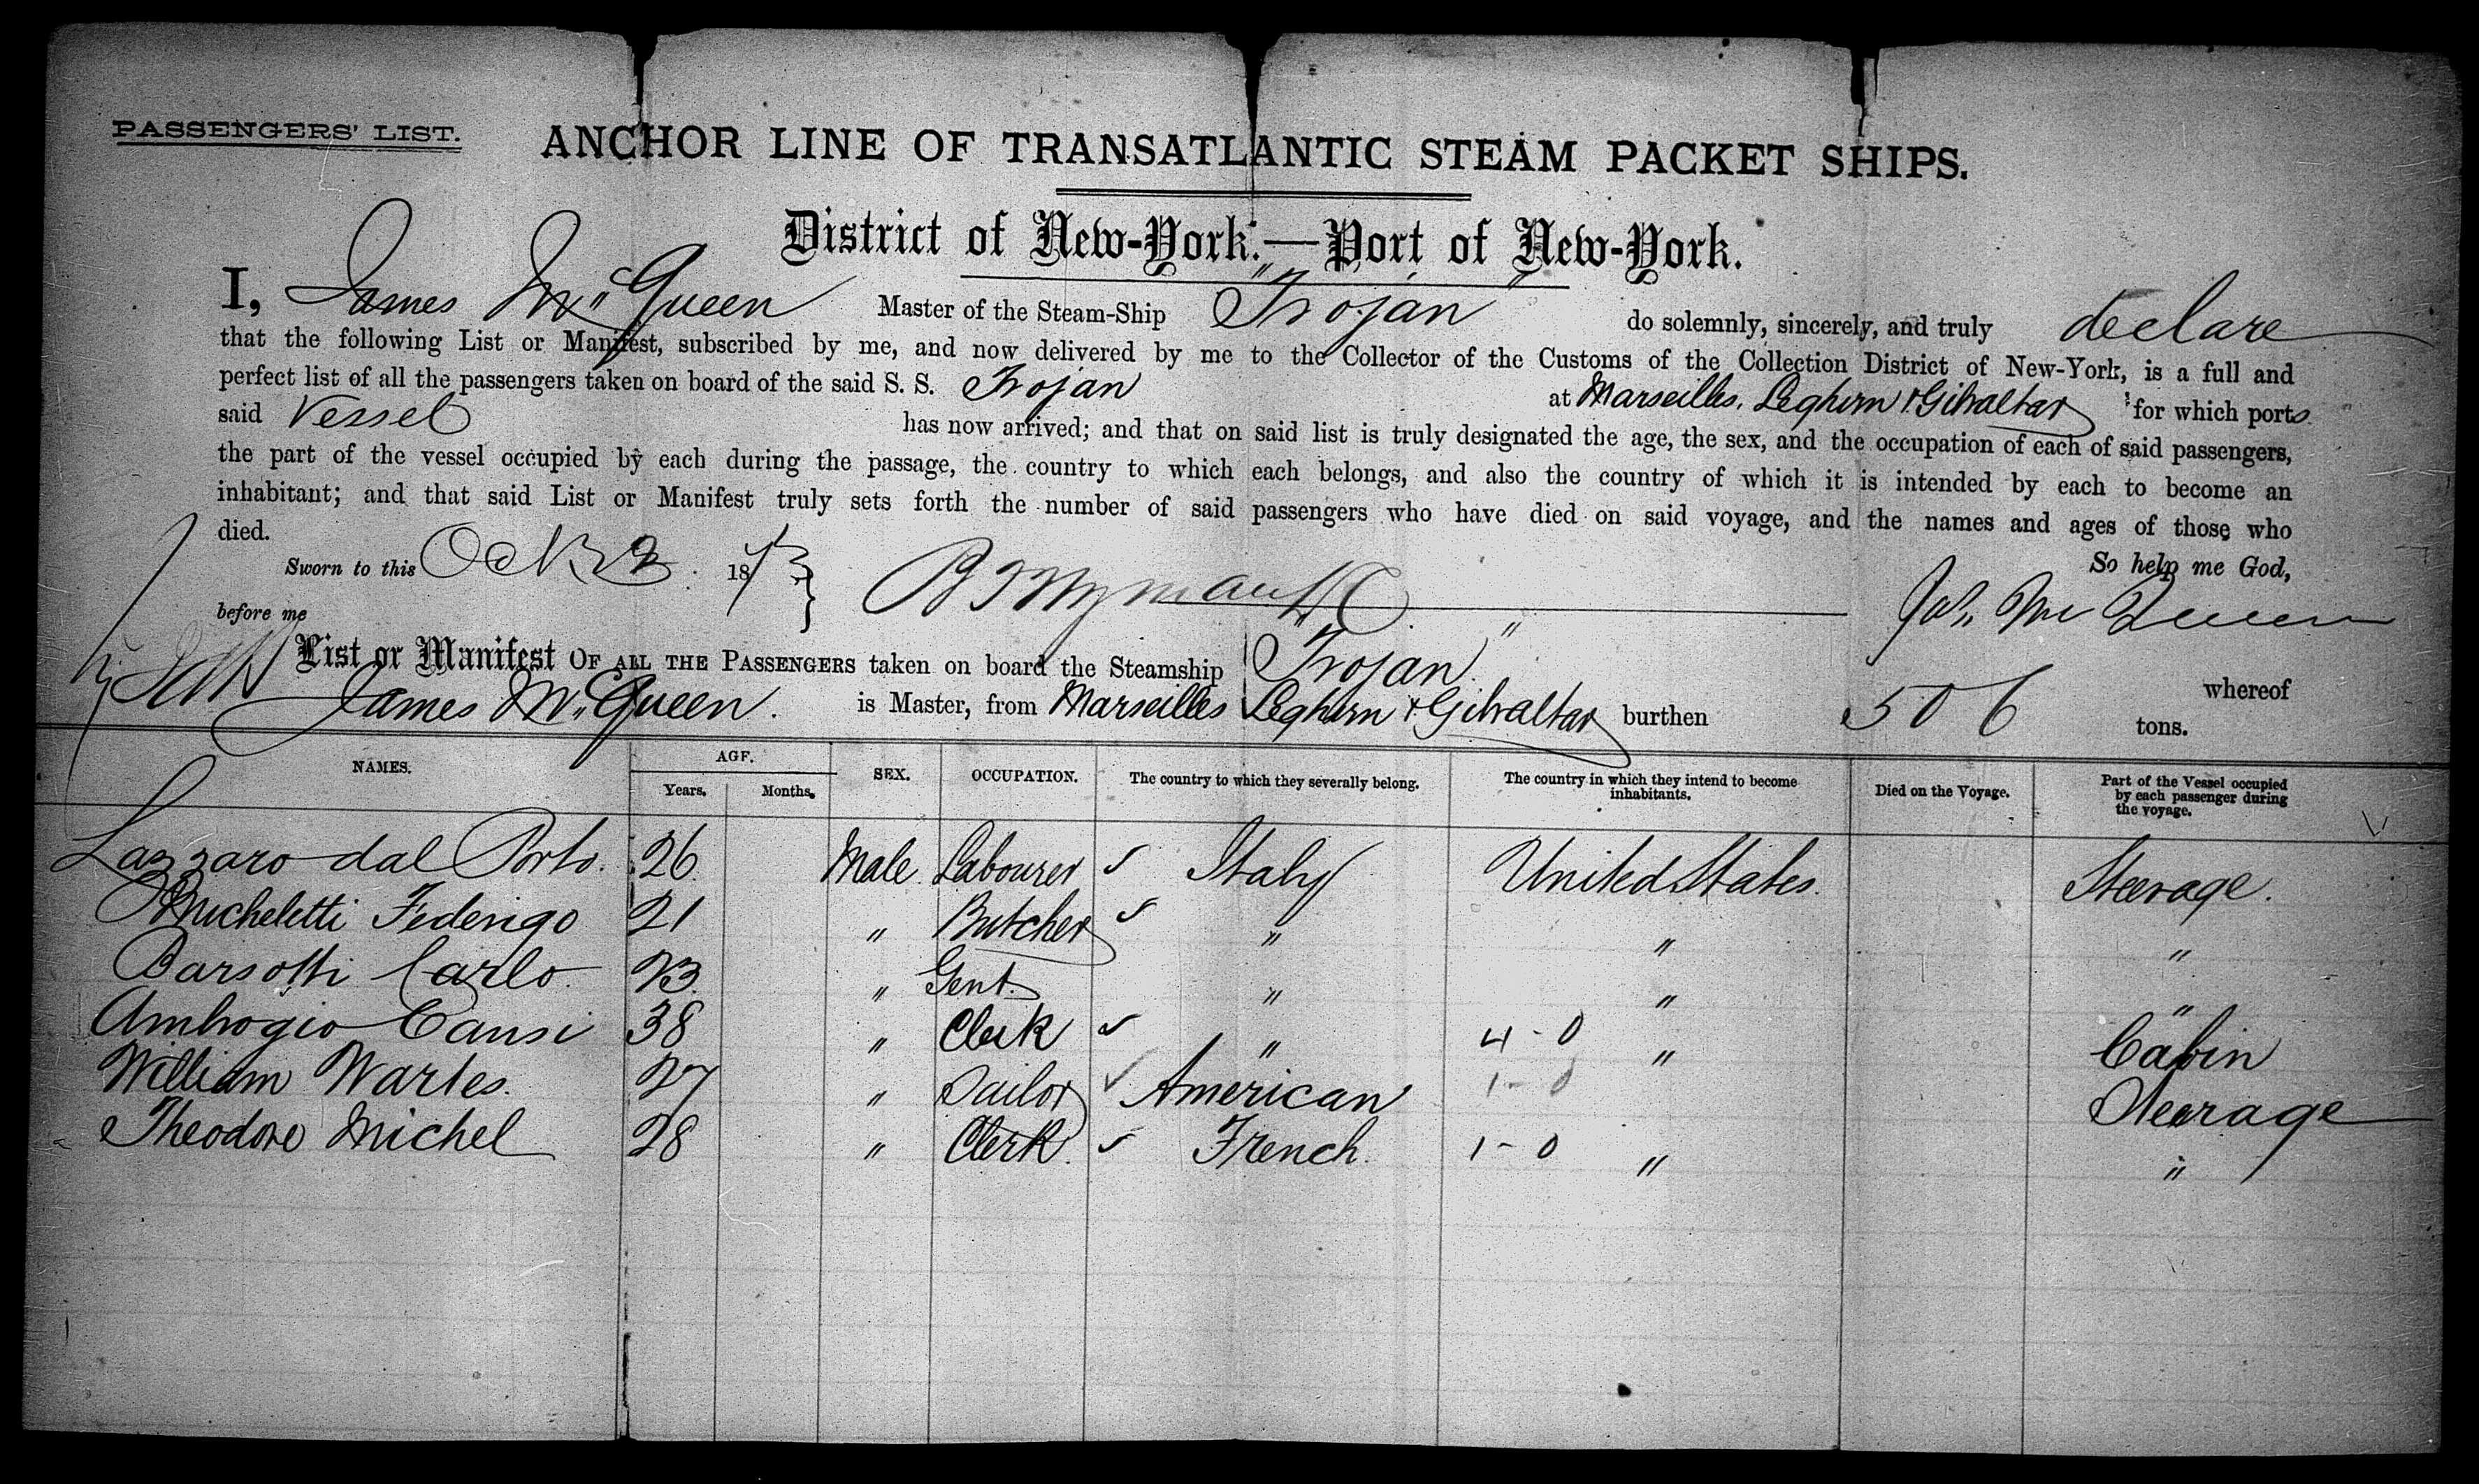 PASSENGERS' LIST.
ANCHOR LINE OF TRANSATLANTIC STEAM PACKET SHIPS.
District of New-York.—Port of New-York.
I, James Mc Queen Master of the Steam-Ship "Trojan" do solemnly, sincerely, and truly declare
that the following List or Manifest, subscribed by me, and now delivered by me to the Collector of the Customs of the Collection District of New-York, is a full and
perfect list of all the passengers taken on board of the said S. S. Trojan at Marseilles, Leghorn & Gibraltar for which ports
said Vessel has now arrived; and that on said list is truly designated the age, the sex, and the occupation of each of said passengers,
the part of the vessel occupied by each during the passage, the country to which each belongs, and also the country of which it is intended by each to become an
inhabitant; and that said List or Manifest truly sets forth the number of said passengers who have died on said voyage, and the names and ages of those who
died.
So help me God,
Sworn to this Oct 1873
before me
Jas. Mc Queen
List or Manifest OF ALL THE PASSENGERS taken on board the Steamship "Trojan" whereof
James Mc Queen. is Master, from Marseilles Leghorn & Gibraltar burthen 506 tons.
NAMES. AGE. SEX. OCCUPATION. The country to which they severally belong. The country in which they intend to become inhabitants. Died on the Voyage. Part of the Vessel occupied by each passenger during the voyage.
Years. Months.
Lazzaro dal Porto. 26 Male Labourer ✓ Italy United States. Steerage.
Micheletti Federigo 21 " Butcher ✓ " " "
Barsotti Carlo 23 " Gent. " " "
Ambrogio Causi 38 " Clerk ✓ " 4-0 " Cabin
William Wartes. 27 " Sailor ✓ American 1-0 Steerage
Theodore Michel 28 " Clerk. ✓ French 1-0 " "